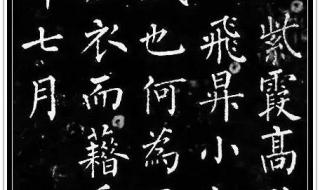 紫霞高
飛昇小
也何為
衣而藉
七月